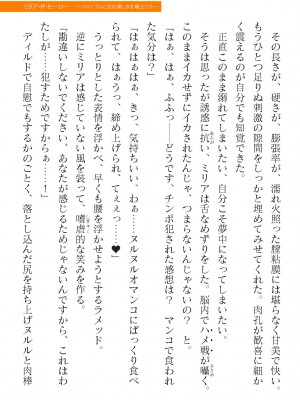 その長さが、硬さが、膨張率が、濡れ火照った膣粘膜には堪らなく甘美で快い。
もうひとつ足りぬ刺激の隙間をしっかと埋めてみせてくれた。肉孔が歓喜に細か
く震えるのが自分でも知覚できた。
正直このまま溺れてしまいたい、自分こそ夢中になってしまいたい。
そうは思ったが誘惑に抗い、ミリアは舌なめずりをした。脳内でハメ戦が囁く。
このままイカせずにイカされたんじゃ、つまらないんじゃないの？　と。
「はぁ、はぁ、ふふっ――どうです、チンポ犯された感想は？　マンコで食われ
た気分は？」
「はぁはぁはぁ、きっ、気持ちいい、わぁ……ヌルヌルオマンコにばっくり食べ
られて、はぁうっ、締め上げられ、てぇぇっ……♥」
うっとりとした表情を浮かべ、早くも腰を浮かせようとするラメッド。
逆にミリアは感じていない風を装って、嗜虐的な笑みを作る。
「勘違いしないでください、あなたが感じるためじゃないんですから、これはわ
たしが……犯すためですからぁ――！」
ディルドで自慰でもするかのごとく、落とし込んだ尻を持ち上げヌルルと肉棒